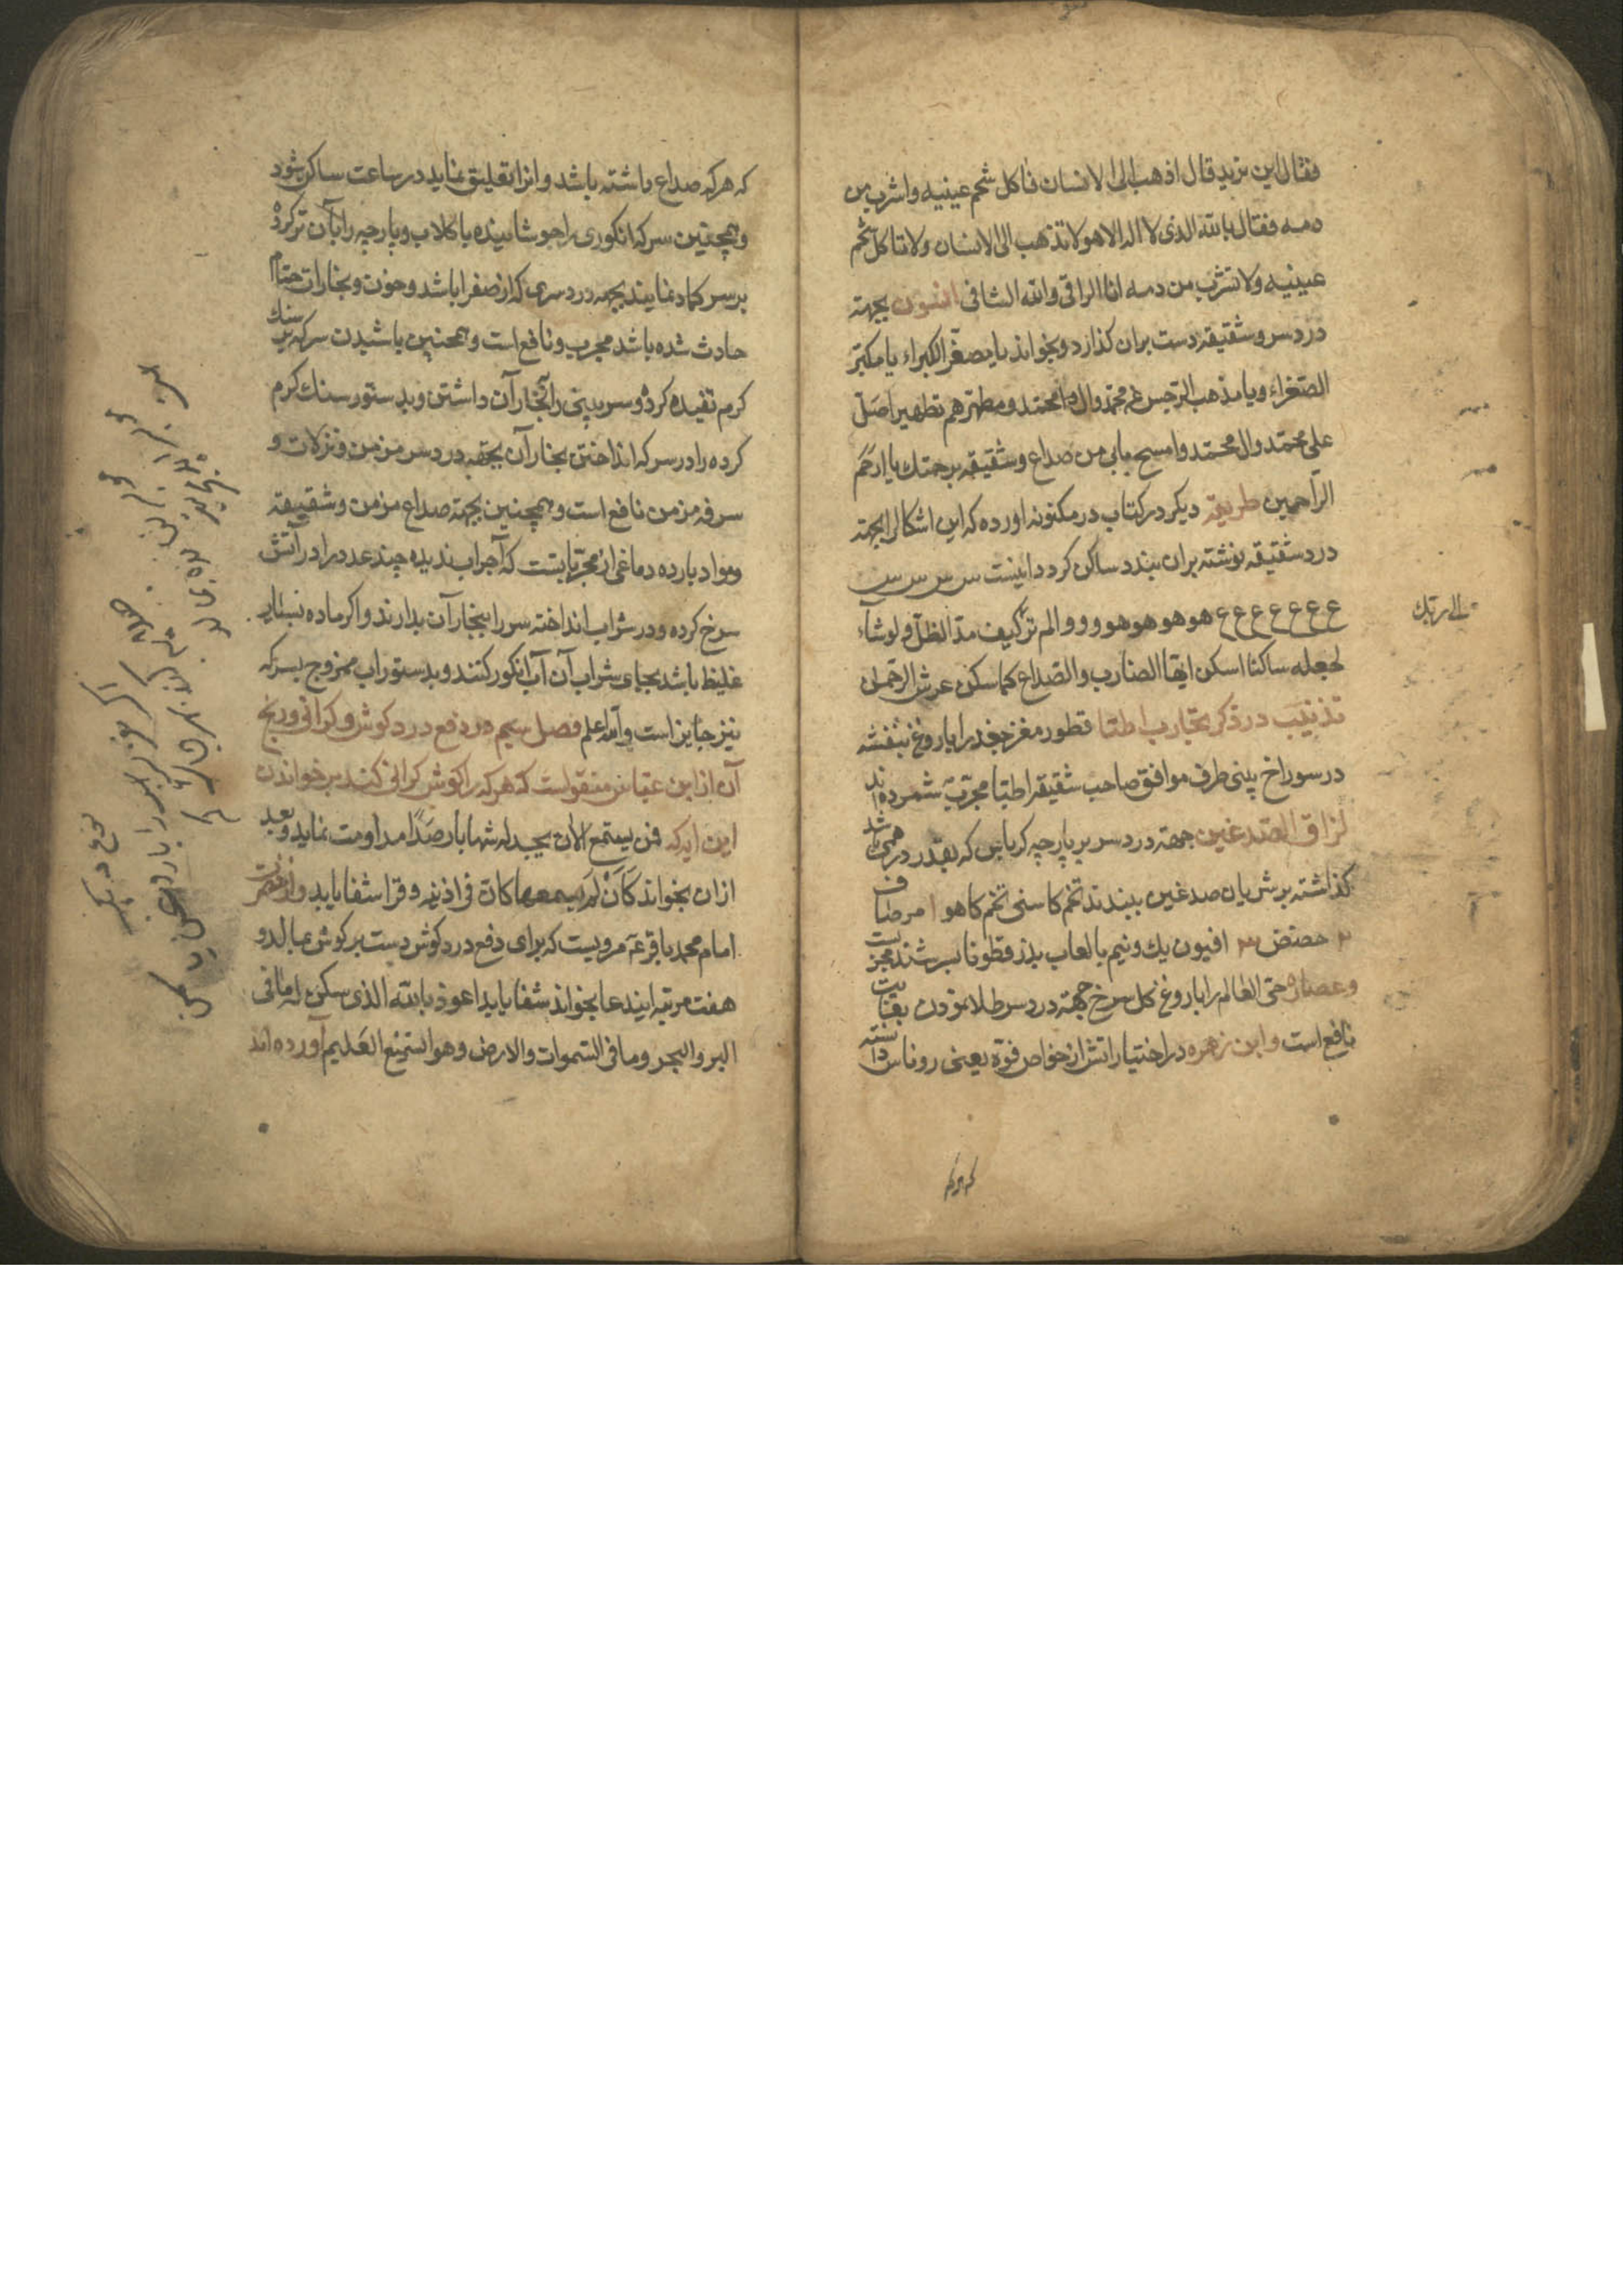 فقال این ترید قال اذهب الی الانسان فاکل شحم عینیه واشرب من
دمه فقال بالله الذی لا اله الا هو لا تذهب الی الانسان ولا تاکل شحم
عینیه ولا تشرب من دمه انا الراقی والله الشافی افسون بجهته
درد سر وشقیقه دست بران کذارد وبخواند یا مصغر الکبراء یا مکبر
الصغراء ویا مذهب الرجس عن محمد وال محمد ومطهرهم تطهیرا صل
علی محمد وال محمد وامسح مابی من صداع وشقیقه برحمتك یا ارحم
الراحمین طریقه دیکر در کتاب در مکنونه اورده که این اشکال را بجهته
درد شقیقه نوشته بران بندد ساکن کردد اینست س س س س
ع ع ع ع ع ع ع هو هو هو هو و و و الم تر کیف مد الظل ولو شاء
لجعله ساکنا اسکن ایها الضارب والصداع کما سکن عرش الرحمن
تذنیب در ذکر تجارب اطبا قطور مغز جغد را با روغن بنفشه
در سوراخ بینی طرف موافق صاحب شقیقه اطبا مجرب شمرده اند
لزاق الصدغین جهته درد سر بر پارچه کرباس که بقدر درهمی باشد
کذاشته بر شریان صدغین ببندند تخم کاسنی تخم کاهو ا مر صاف
۲ حضض ۳ افیون یك ونیم بالعاب بذر قطونا بسرشند مجربست
وعصاره حی العالم را با روغن کل سرخ جهته درد سر طلا نمودن بغایت
نافع است وابن زهره در اختیاراتش از خواص فوه یعنی روناس دانسته
که هرکه
که هرکه صداع داشته باشد وانرا تعلیق نماید در ساعت ساکن شود
وهمچنین سرکه انکوری را جوشانیده با کلاب وپارچه را بآن تر کرده
بر سر کماد نمایند بجهه درد سری که از صفرا باشد وخون وبخارات حمام
حادث شده باشد مجرب ونافع است وهمچنین پاشیدن سرکه بر سنك
کرم تفیده کرده وسر وبینی را ببخار آن داشتن وبدستور سنك کرم
کرده را در سرکه انداختن بخار آن بجهه درد سر مزمن ونزلات و
سرفه مزمن نافع است وهمچنین بجهة صداع مزمن وشقیقه
ومواد بارده دماغی از مجرباتست که آجر اب ندیده چند عدد را در آتش
سرخ کرده ودر شراب انداخته سر را ببخار آن بدارند واکر ماده بسیار
غلیظ باشد بجای شراب آن آب انکور کنند وبدستور اب ممزوج بسرکه
نیز جایز است والله اعلم فصل سیم در دفع درد کوش وکرانی وریح
آن از ابن عباس منقولست که هرکه را کوش کرانی کند بر خواندن
این ایه که فمن یستمع الان یجد له شهابا رصدا مداومت نماید وبعد
ازان بخواند کان لم یسمعها کان فی اذنیه وقرا شفا یابد واز حضرت
امام محمد باقر ع مرویست که برای دفع درد کوش دست بر کوش بمالد و
هفت مرتبه ایندعا بخواند شفا یابد اعوذ بالله الذی سکن له ما فی
البر والبحر وما فی السموات والارض وهو السمیع العلیم آورده اند